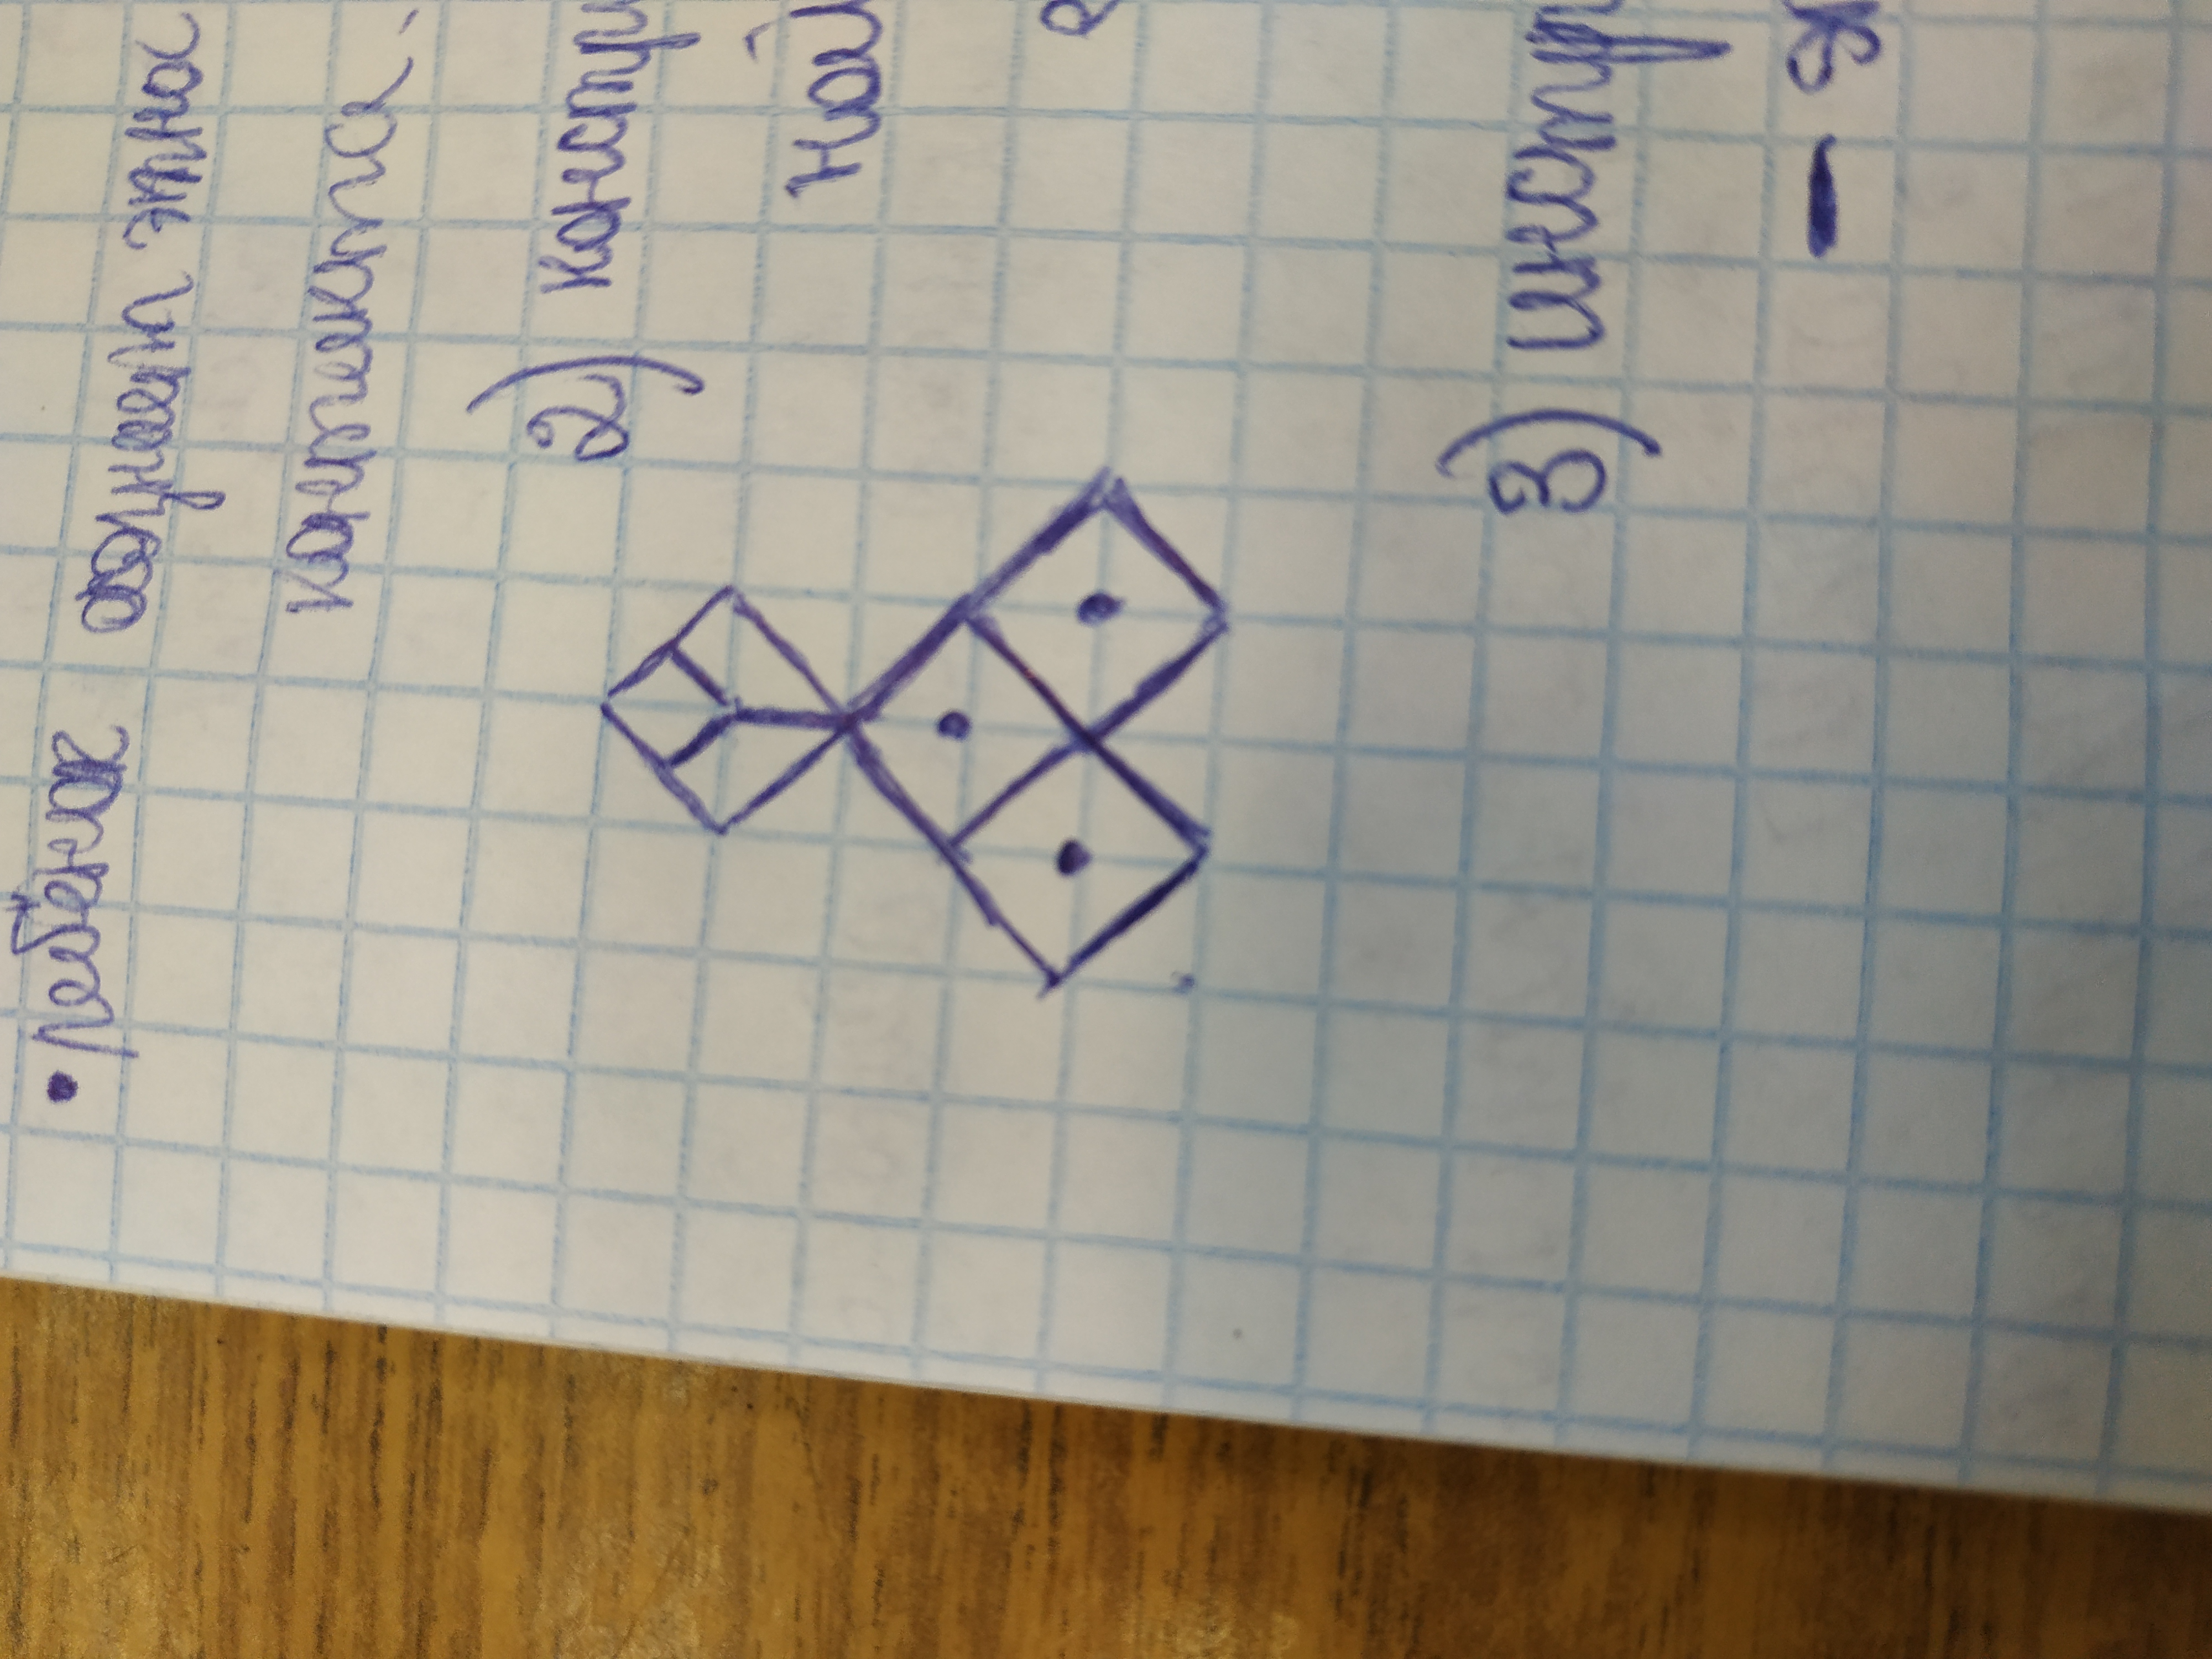 • ребёнок осознаёт этнос
контакта.
2) констру
ной
3) инстр
— эт